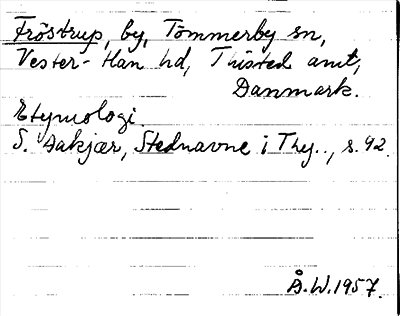 Fröstrup, by, Tömmerby sn,
Vester-Han hd, Thisted amt,
Danmark.
Etymologi.
S. Aakjær, Stednavne i Thy.., s. 92.
Å.W.1957.